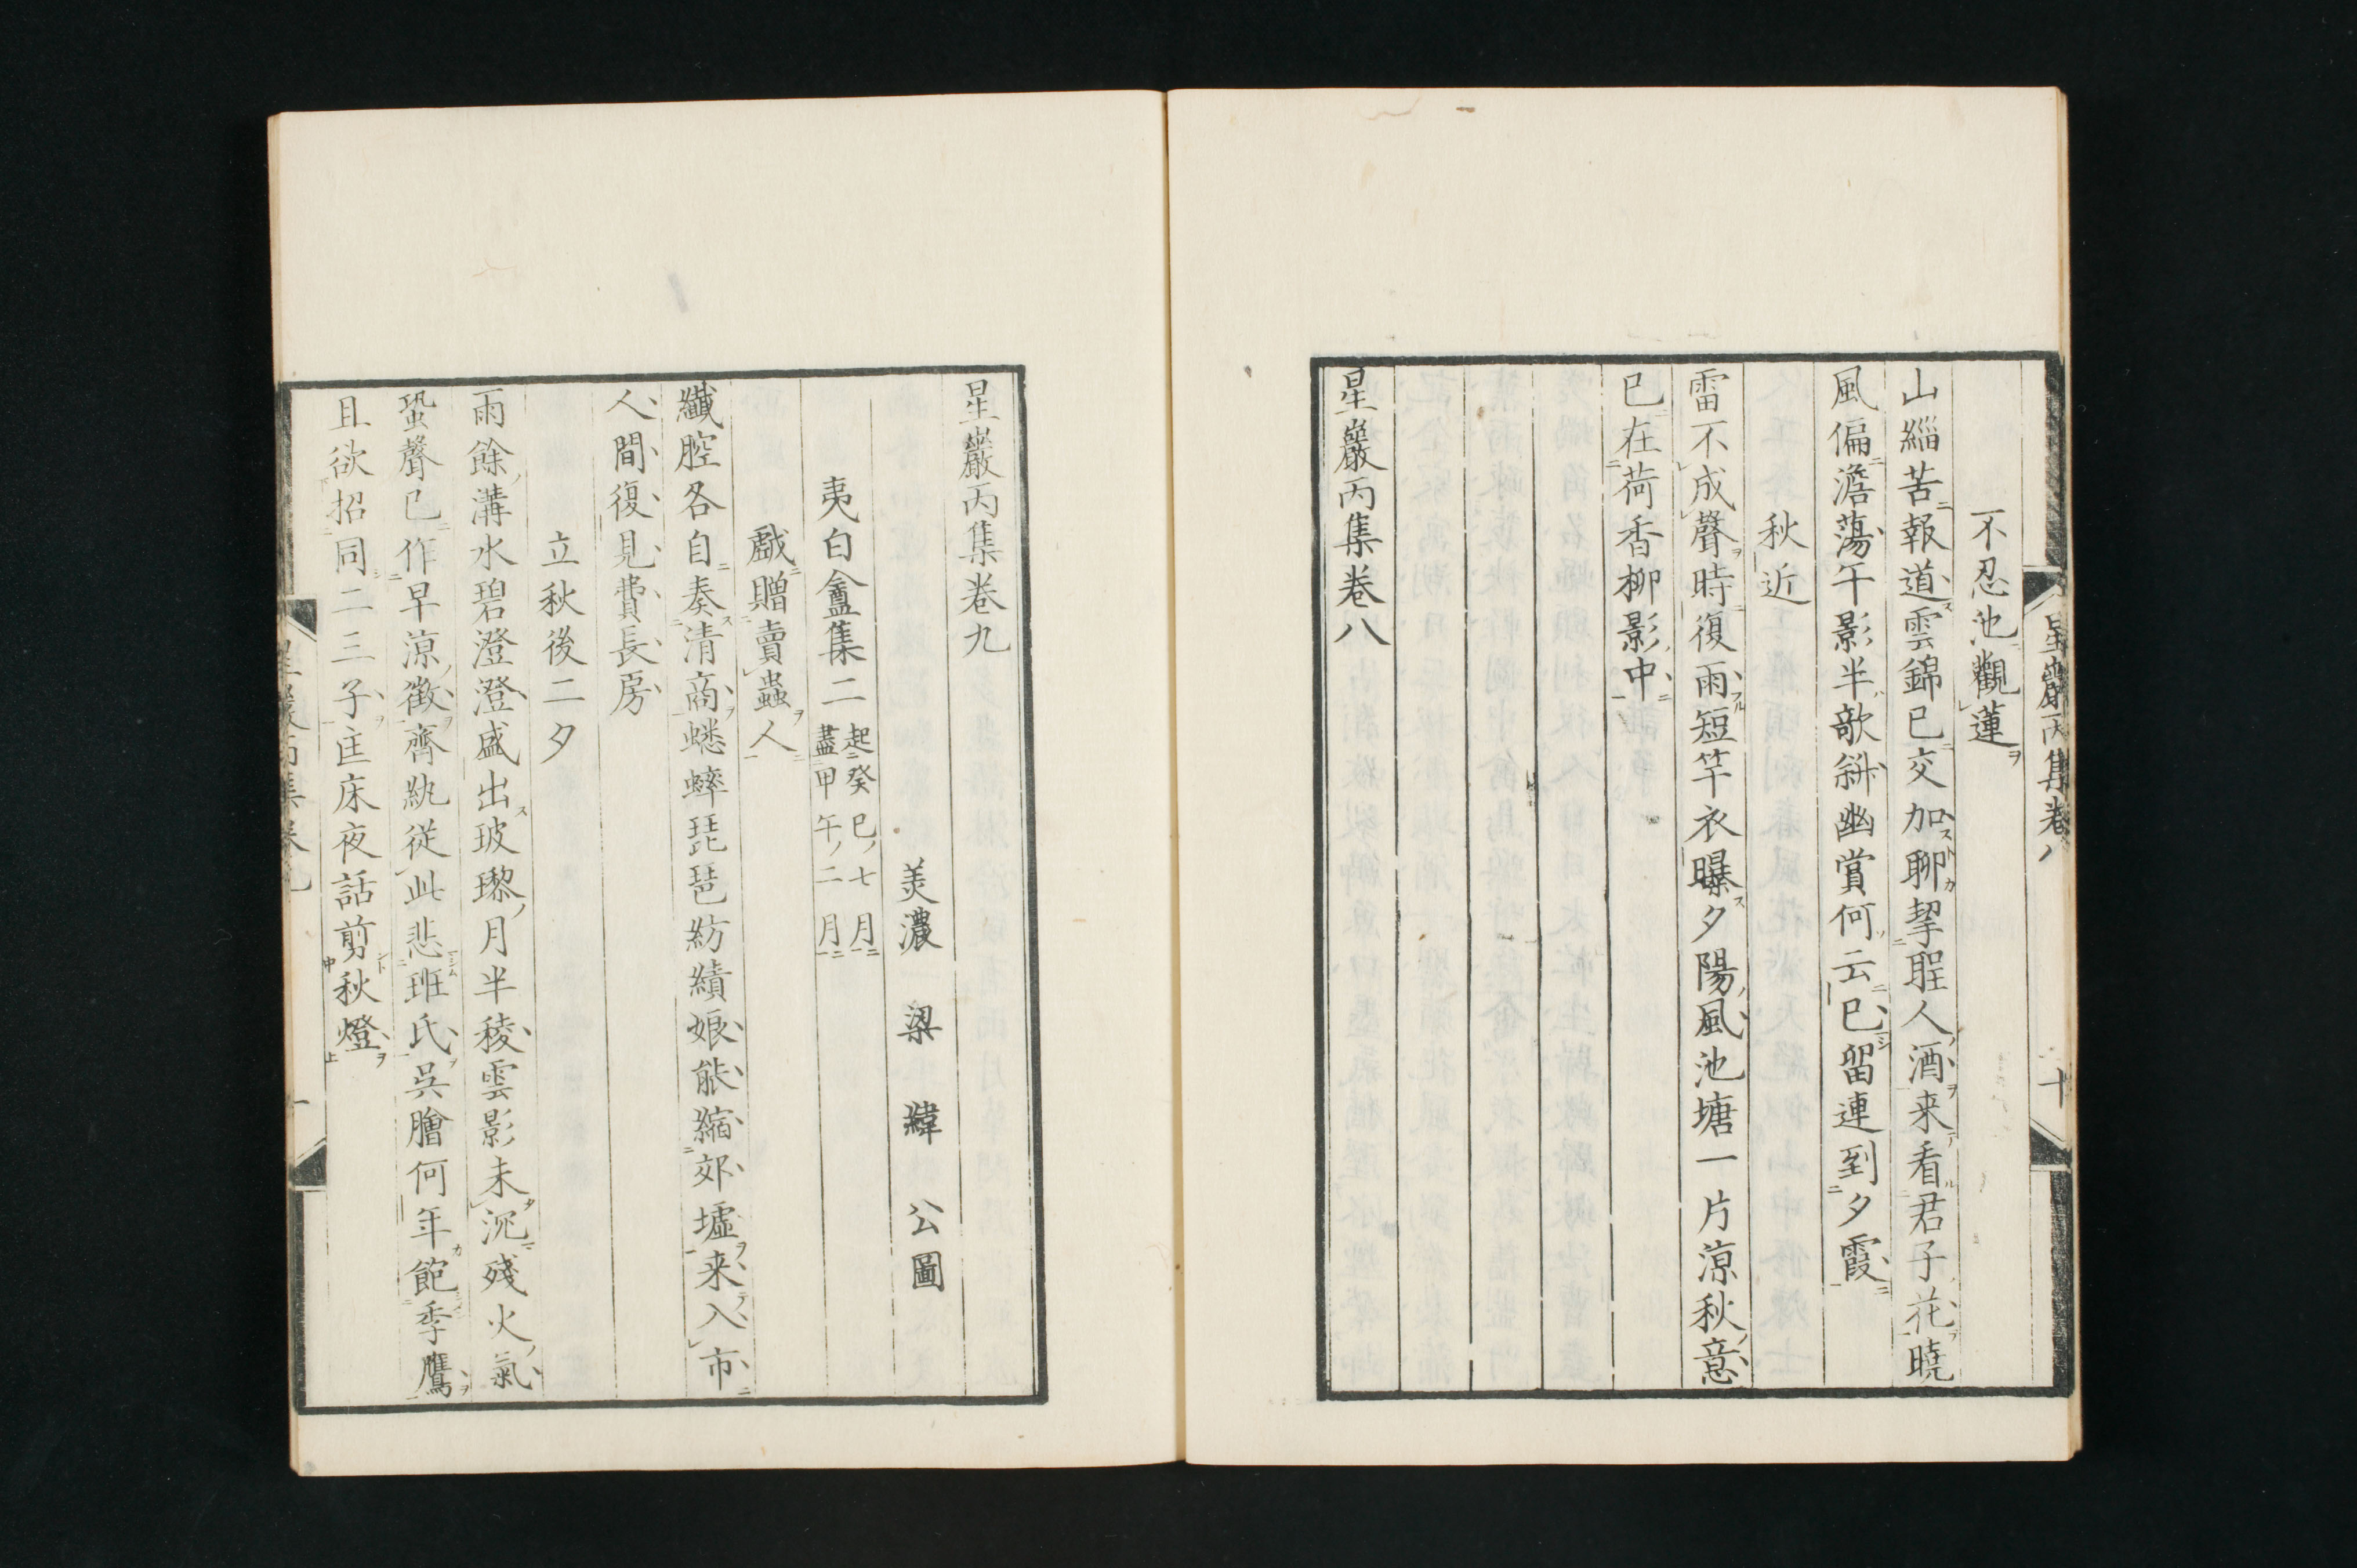 星巖丙集卷八
十
不忍池觀蓮
山緇苦報道雲錦已交加聊挈腥人酒来看君子花曉
風偏澹蕩午影半欹斜幽賞何云已留連到夕霞
秋近
雷不成聲時復雨短竿衣曝夕陽風池塘一片凉秋意
已在荷香柳影中
星巖丙集卷八
星巖丙集卷九
美濃 梁 緯 公圖
夷白盦集二 起癸巳七月
盡甲午二月
戲贈賣蟲人
纖腔各自奏清商蟋蟀琵琶紡績娘能縮郊墟来入市
人間復見費長房
立秋後二夕
雨餘溝水碧澄澄盛出玻瓈月半稜雲影未沉殘火氣
蛩聲已作早凉徵齊紈從此悲班氏吳膾何年飽季鷹
且欲招同二三子匡床夜話剪秋燈